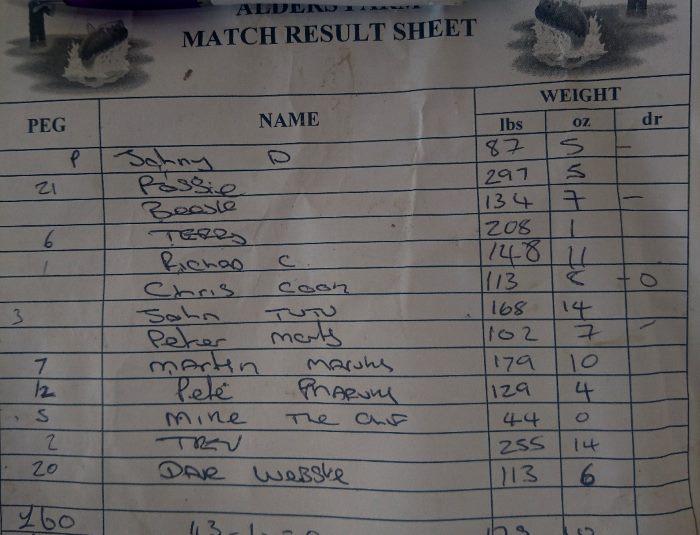 ALDERS FARM
MATCH RESULT SHEET
WEIGHT
PEG NAME lbs oz dr
P Johny D 87 5 -
21 Possie 297 5
134 7 -
6 TERRY 208 1
1 Richad C 148 11
Chris Coon 113 8 - 0
3 John TUTU 168 14
Peter 102 7 -
7 Martin 179 10
12 Pete 129 4
5 Mike The 44 0
2 TREV 255 14
20 DAR 113 6
£60